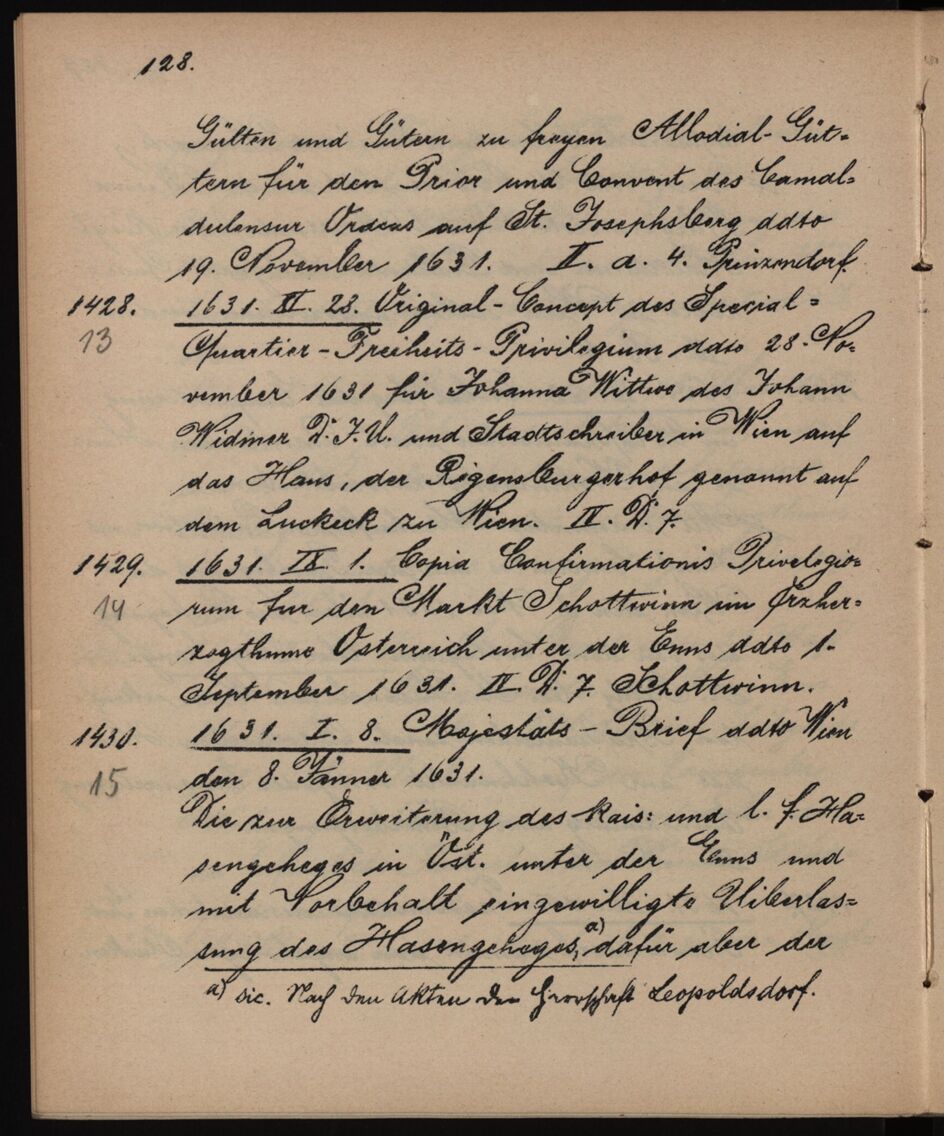 128.
Gülten und Gütern zu freyen Allodial-Güt=
tern für den Prior und Convent des Camal=
dulensur Ordens auf St. Josephsberg ddto
19. November 1631. II. a. 4. Prinzendorf.
1428. 1631. XI. 28. Original-Concept des Special=
13 Quartier-Freiheits-Privilegium ddto 28. No=
vember 1631 für Johanna Wittwe des Johann
Widmer D.J.U. und Stadtschreiber in Wien auf
das Haus, der Regensburgerhof genannt auf
dem Luckeck zu Wien. IV. D. 7.
1429. 1631. IX. 1. Copia Confirmationis Privelegio=
14 rum fur den Markt Schottwinn im Erzher=
zogthume Osterreich unter der Enns ddto 1.
September 1631. IV. D. 7. Schottwinn.
1430. 1631. I. 8. Majestäts-Brief ddto Wien
15 den 8. Jänner 1631.
Die zur Erweiterung des kais: und l. f. Ha=
sengeheges in Öst. unter der Enns und
mit Vorbehalt eingewilligte Uiberlas=
sung des Hasengeheges,a) dafür aber der
a) sic. Nach den Akten der Herrschaft Leopoldsdorf.